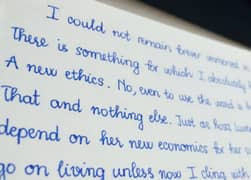 I could not remain forever immersed in
There is something for which I absolutely
A new ethics. No, even to use the word
That and nothing else. Just as Rosa
depend on her new economics for her
go on living unless now I cling with